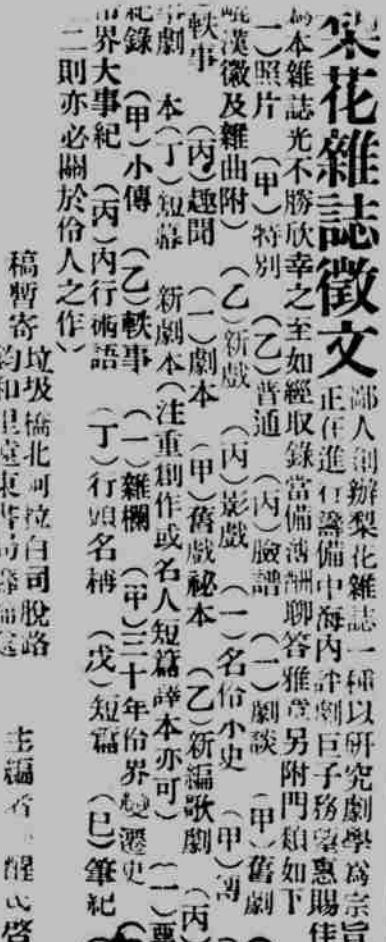 梨花雜誌徵文
鄙人創辦梨花雜誌一種以研究劇學為宗旨
正在進行籌備中海內評劇巨子務望惠賜佳
為本雜誌光不勝欣幸之至如經取錄當備薄酬聊答雅意另附門類如下
一)照片 (甲)特別 (乙)普通 (丙)臉譜 (一)劇談 (甲)舊劇
漢徽及雜曲附) (乙)新戲 (丙)影戲 (一)名伶小史 (甲)傳
軼事 (丙)趣聞 (一)劇本 (甲)舊戲秘本 (乙)新編歌劇 (丙)
劇本(丁)短幕 新劇本(注重創作或名人短篇譯本亦可) (一)
紀錄 (甲)小傳 (乙)軼事 (一)雜欄 (甲)三十年伶界變遷史
界大事紀 (丙)內行術語 (丁)行頭名稱 (戊)短篇 (巳)筆紀
二則亦必關於伶人之作)
稿暫寄垃圾橋北阿拉白司脫路
鈞和里遠東書局
主編者 醒民啓